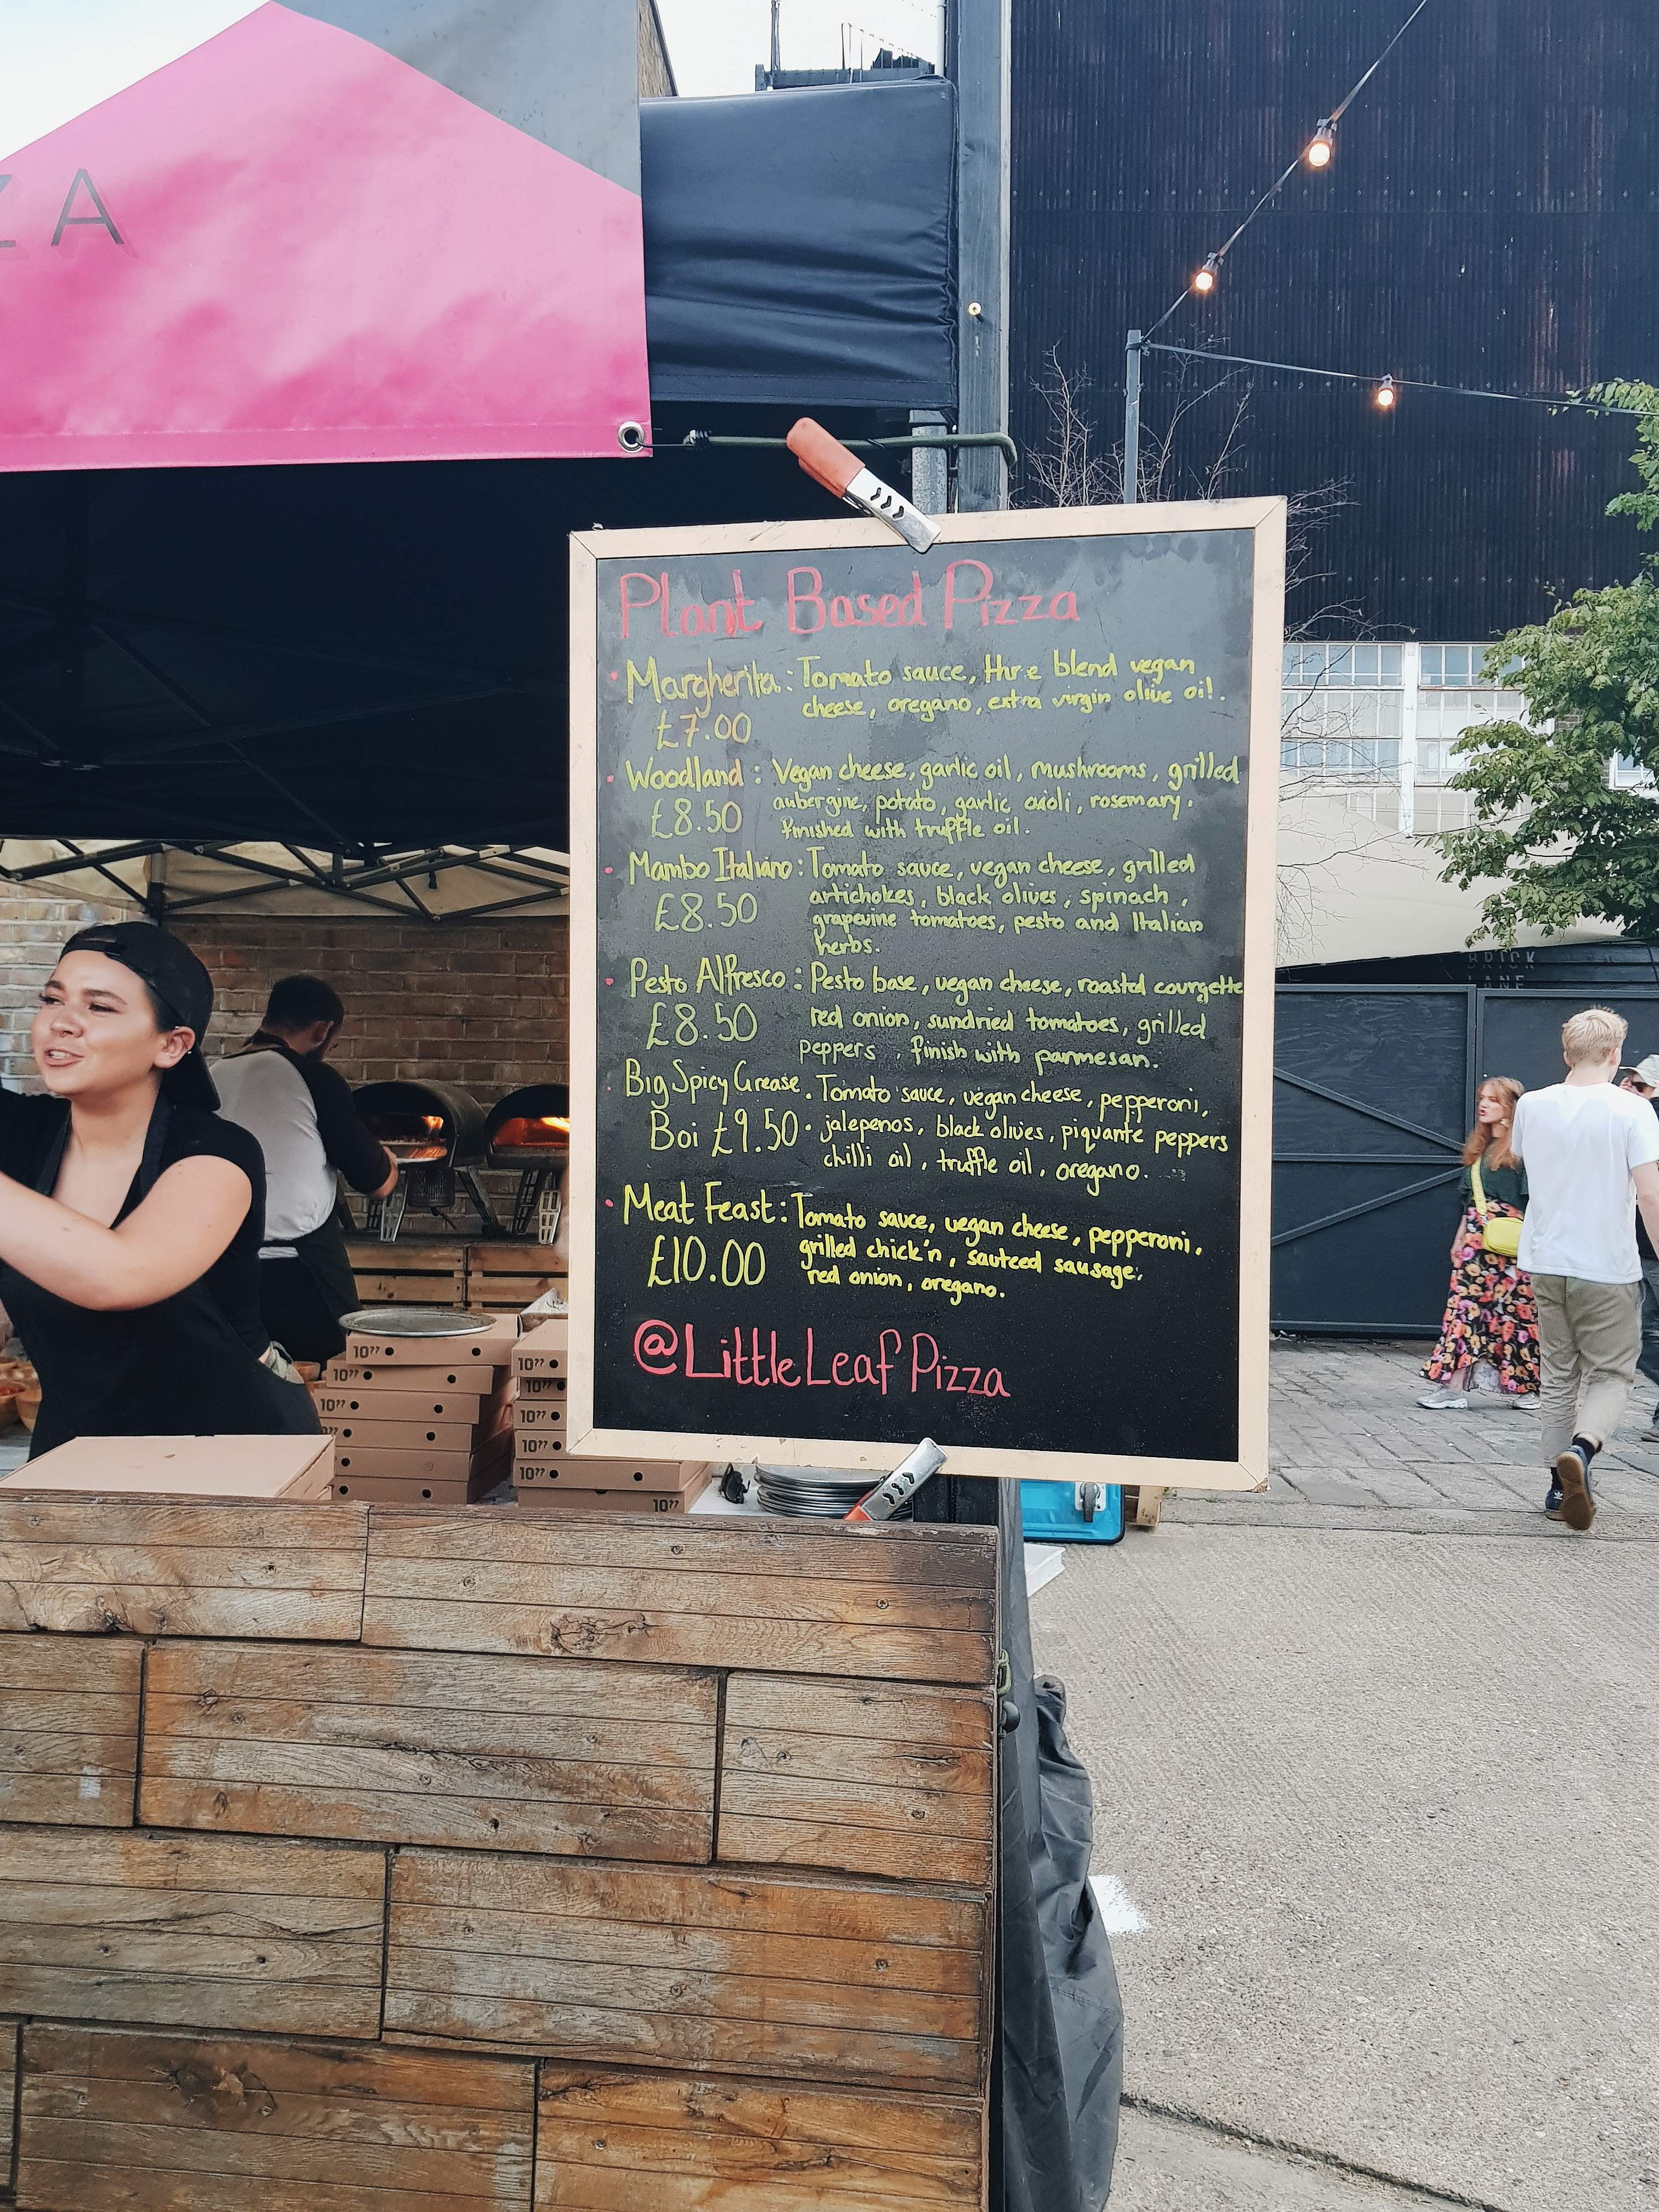 ZZA
Plant Based Pizza
Margherita: Tomato sauce, thre blend vegan
cheese, oregano, extra virgin olive oil.
£7.00
Woodland: Vegan cheese, garlic oil, mushrooms, grilled
£8.50 aubergine, potato, garlic aioli, rosemary.
finished with truffle oil.
Mambo Italiano: Tomato sauce, vegan cheese, grilled
artichokes, black olives, spinach,
£8.50 grapevine tomatoes, pesto and Italian
herbs.
Pesto Alfresco: Pesto base, vegan cheese, roasted courgette
£8.50 red onion, sundried tomatoes, grilled
peppers, finish with parmesan.
Big Spicy Grease. Tomato sauce, vegan cheese, pepperoni,
Boi £9.50. jalepenos, black olives, piquante peppers
chilli oil, truffle oil, oregano.
Meat Feast: Tomato sauce, vegan cheese, pepperoni,
£10.00 grilled chick'n, sauteed sausage,
red onion, oregano.
@LittleLeafPizza
BRICK
LANE
10"
10"
10"
10"
10"
10"
10"
10"
10"
10"
10"